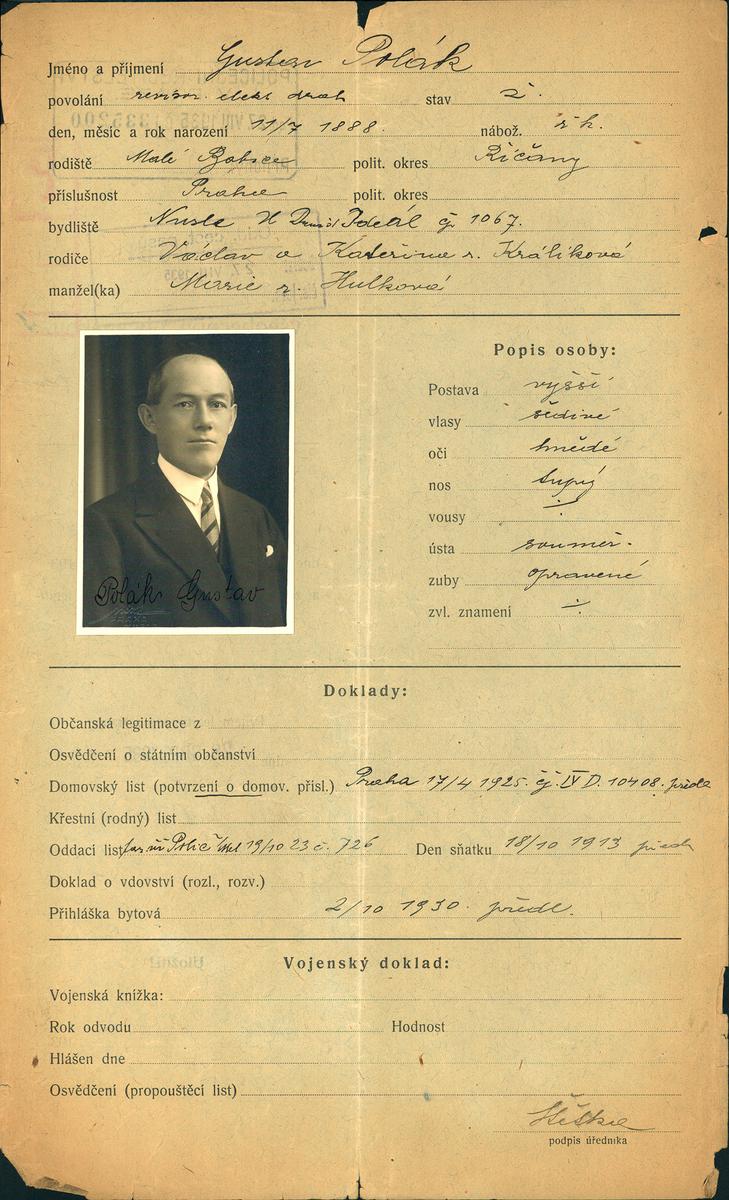 Jméno a příjmení Gustav Polák
povolání revisor. elekt drah stav ž.
den, měsíc a rok narození 11/7 1888. nábož. ř h.
rodiště Malé polit. okres Říčany
příslušnost Praha polit. okres
bydliště Nusle Ideál čp. 1067.
rodiče Václav a Kateřina r. Králíková
manžel(ka) Marie r. Hulková
Popis osoby:
Postava vyšší
vlasy šedivé
oči hnědé
nos tupý
vousy ÷
ústa souměr.
zuby opravené
zvl. znamení ÷
Polák Gustav
Doklady:
Občanská legitimace z
Osvědčení o státním občanství
Domovský list (potvrzení o domov. přísl.) Praha 17/4 1925. čj. IV D. 10408. předl
Křestní (rodný) list
Oddací list 19/10 23 č. 726 Den sňatku 18/10 1913
Doklad o vdovství (rozl., rozv.)
Přihláška bytová 2/10 1930. předl.
Vojenský doklad:
Vojenská knížka:
Rok odvodu Hodnost
Hlášen dne
Osvědčení (propouštěcí list)
podpis úředníka